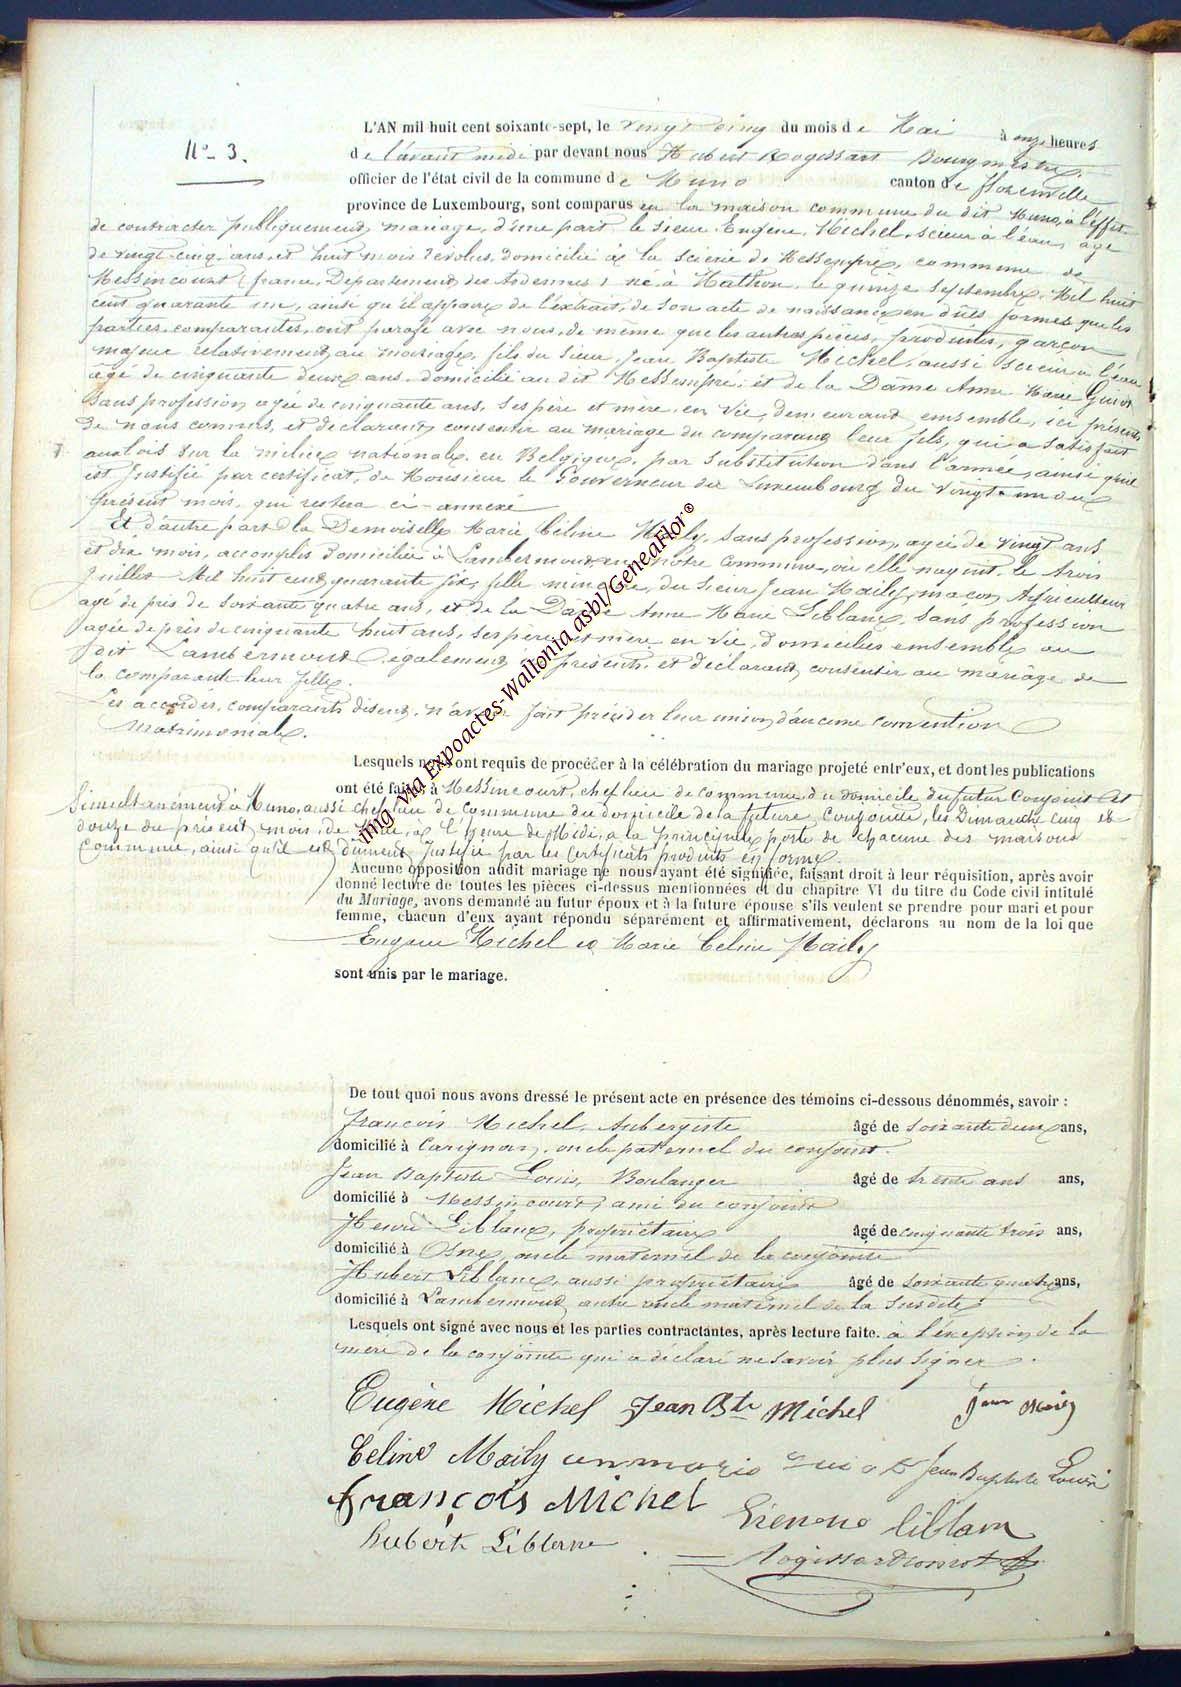 N° 3.
L'AN mil huit cent soixante-sept, le vingt cinq du mois de Mai à onze heures
de l'avant midi par devant nous Hubert Rogissart Bourgmestre,
officier de l'état civil de la commune de Muno canton de florenville
province de Luxembourg, sont comparus en la maison commune du dit Muno, à l'effet
de contracter publiquement mariage, d'une part le sieur Eugène Michel, scieur à l'eau, âgé
de vingt cinq ans et huit mois révolus, domicilié à la scierie de Messempré, commune de
Messincourt (france, Département des Ardennes) né à Mathon, le quinze Septembre Mil huit
cent quarante un, ainsi qu'il appaire de l'extrait de son acte de naissance en dûes formes que les
parties comparantes, ont parafé avec nous, de même que les autres pièces, produites, garçon
majeur relativement au mariage, fils du Sieur Jean Baptiste Michel, aussi scieur à l'eau
âgé de cinquante deux ans, domicilié au dit Messempré; et de la Dame Anne Marie
Sans profession âgée de cinquante ans, ses père et mère, en vie, demeurant ensemble, ici présents
de nous connus, et déclarant consentir au mariage du comparant leur fils, qui a satisfait
aux lois sur la milice nationale en Belgique, par substitution dans l'armée, ainsi qu'il
est justifié par certificat, de Monsieur le Gouverneur du Luxembourg du vingt un du
présent mois, qui restera ci-annexé
Et d'autre part la Demoiselle Marie Céline Maily, sans profession, agée de vingt ans
et dix mois, accomplis domiciliée à Lambermont en notre Commune, où elle naquit, le trois
Juillet Mil huit cent quarante six, fille mineure, du Sieur Jean Maily, maçon Agriculteur
agé de près de soixante quatre ans, et de la Dame Anne Marie Liblanc, sans profession
agée de près de cinquante huit ans, ses père et mère en vie, domiciliés ensemble au
dit Lambermont également ici présents, et déclarant consentir au mariage de
la comparante leur fille.
Les accordés, comparants disent, n'avoir fait précéder leur union d'aucune convention
Matrimoniale.
Lesquels nous ont requis de procéder à la célébration du mariage projeté entr'eux, et dont les publications
ont été faites à Messincourt, chef lieu de commune, du domicile du futur Conjoint et
Simultanément à Muno, aussi chef lieu de commune du domicile de la future Conjointe, les Dimanches cinq et
douze du présent mois, de à l'heure de Midi, à la principale porte de chacune des maisons
Commune, ainsi qu'il est dûment justifié par les Certificats produits en forme.
Aucune opposition audit mariage ne nous ayant été signifiée, faisant droit à leur réquisition, après avoir
donné lecture de toutes les pièces ci-dessus mentionnées et du chapitre VI du titre du Code civil intitulé
du Mariage, avons demandé au futur époux et à la future épouse s'ils veulent se prendre pour mari et pour
femme, chacun d'eux ayant répondu séparément et affirmativement, déclarons au nom de la loi que
Eugène Michel et Marie Celine Maily
sont unis par le mariage.
De tout quoi nous avons dressé le présent acte en présence des témoins ci-dessous dénommés, savoir :
françois Michel, Aubergiste âgé de soixante deux ans,
domicilié à Carignan, oncle paternel du conjoint.
Jean Baptiste Louis, Boulanger âgé de trente ans ans,
domicilié à Messincourt, ami du conjoint
Henri Liblanc, propriétaire âgé de cinquante trois ans,
domicilié à Osne, oncle maternel de la conjointe
Hubert Liblanc, aussi propriétaire âgé de soixante quatre ans,
domicilié à Lambermont, autre oncle maternel de la susdite
Lesquels ont signé avec nous et les parties contractantes, après lecture faite. à l'exception de la
mère de la conjointe qui a déclaré ne savoir plus signer.
Eugène Michel Jean Bte Michel Jean
Celine Maily Jean Baptiste Louis
françois Michel
hubert Liblanc
img via Expoactes-Wallonia asbl/GeneaFlor®